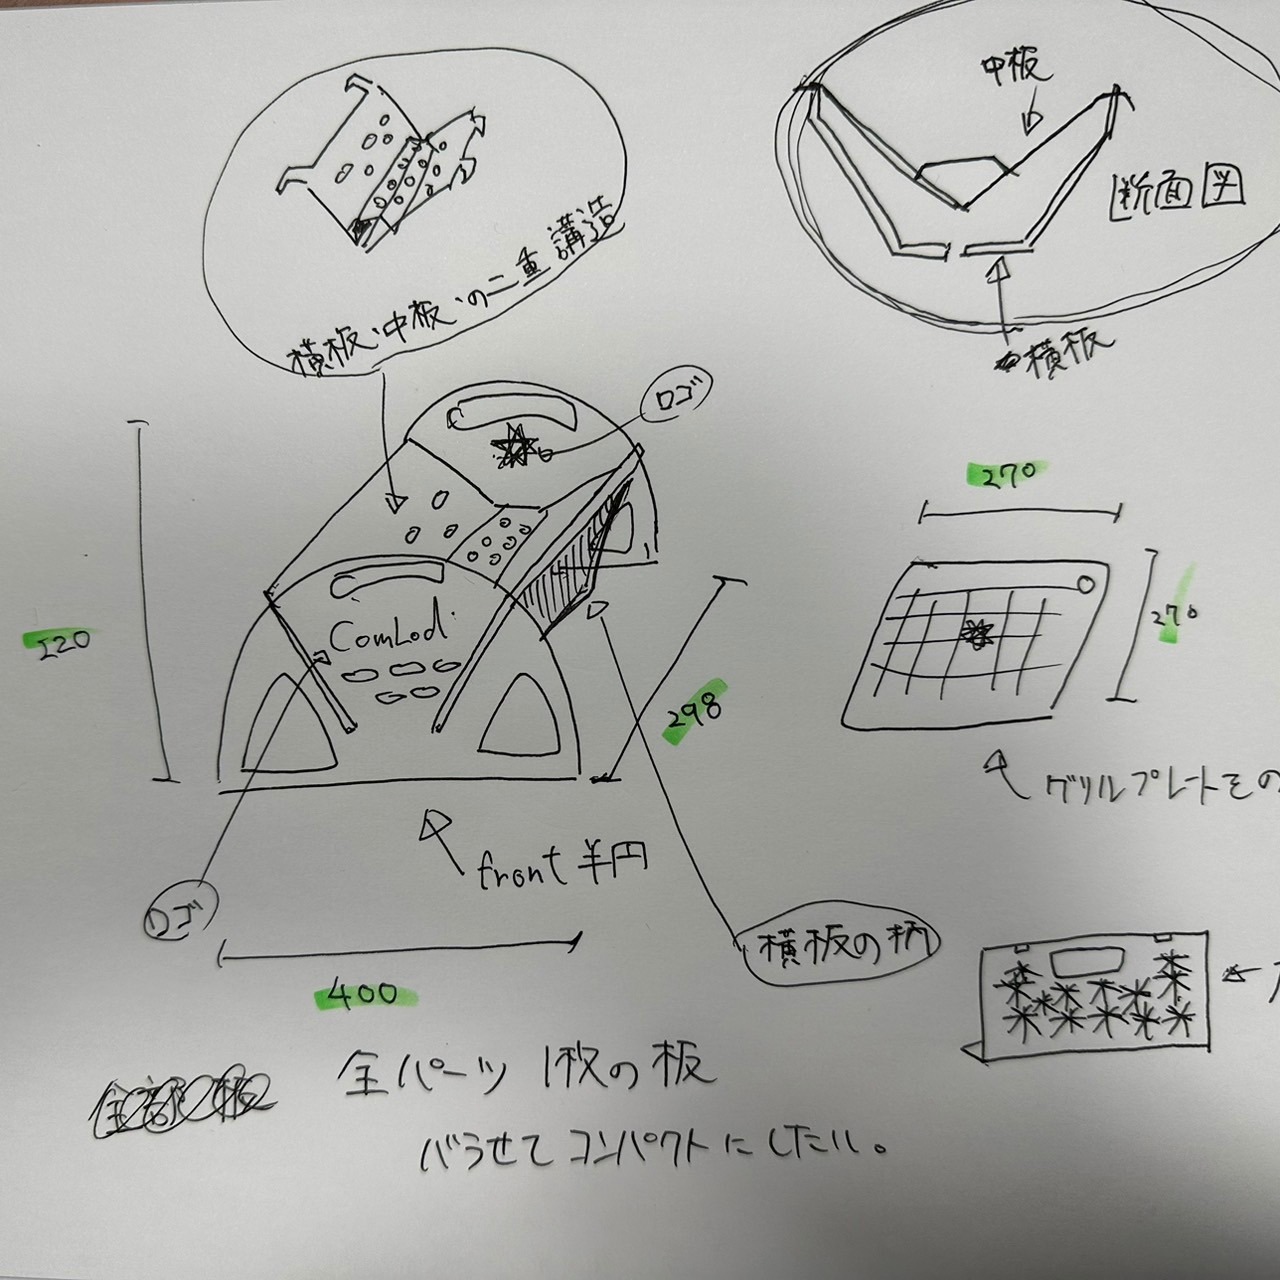 中板
断面図
横板
横板・中板の二重講造
ロゴ
270
270
220
ComLod.
298
グリルプレートその
front 半円
ロゴ
横板の柄
400
全パーツ 1枚の板
バラせてコンパクトにしたい。